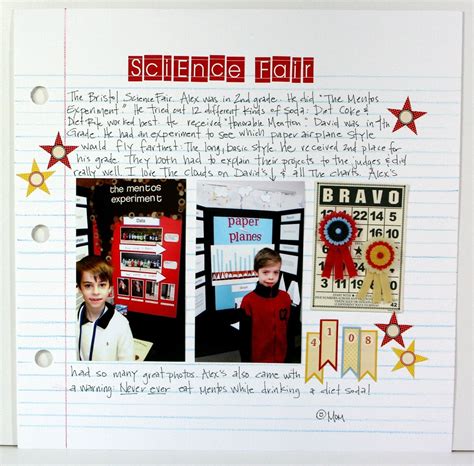 SciEncE Fair
The Bristol Science Fair. Alex was in 2nd grade. He did "The Mentos
Experiment." He tried out 12 different kinds of soda: Diet Coke &
Diet Rite worked best. He received "Honorable Mention." David was in 4th
Grade. He had an experiment to see which paper airplane style
would fly farthest. The long, basic style. He received 2nd place for
his grade. They both had to explain their projects to the judges & did
really well. I love The clouds on David's, & all The charts. Alex's
the mentos
experiment
Data
paper
planes
BRAVO
42
4108
had so many great photos. Alex's also came with
a warning: Never ever eat Mentos while drinking a diet soda!
© Mom